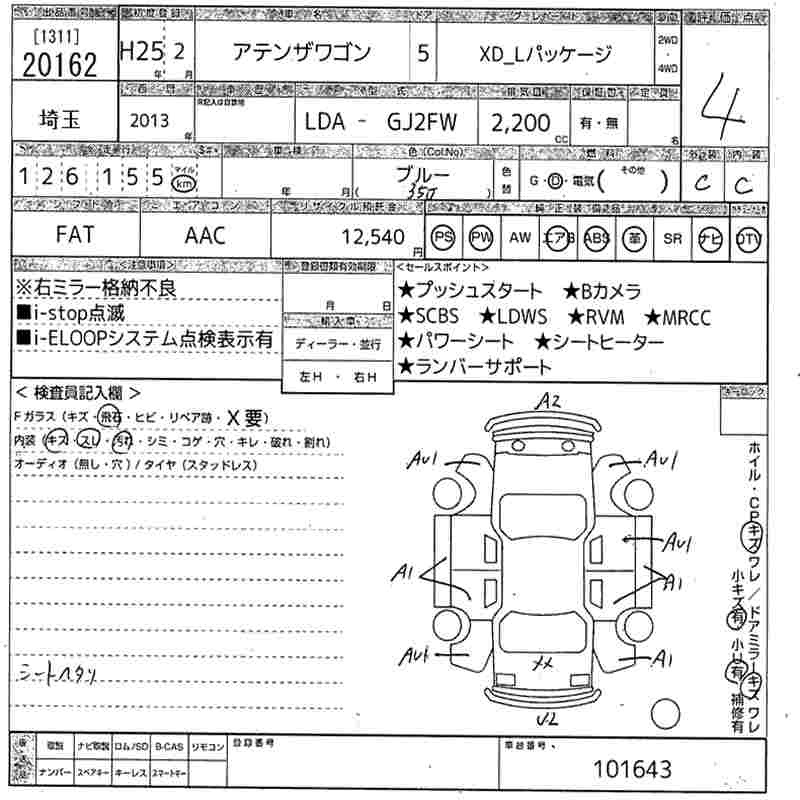 出品番号 初度登録 車名 ドア グレード 駆動 評価点
[1311]
20162 H25年 2月 アテンザワゴン 5 XD_Lパッケージ 2WD・4WD 4
型式 排気量
埼玉 2013年 LDA - GJ2FW 2,200cc 有・無 名
走行 車検 色(Col.No) 燃料 外装 内装
126,155 マイル km 年 月 ブルー ( 35J ) 色替 G・D・電気( その他 ) C C
シフト エアコン リサイクル預託金
FAT AAC 12,540円 PS PW AW エアB ABS 革 SR ナビ DTV
<注意事項> 登録書類有効期限 <セールスポイント>
※右ミラー格納不良
■i-stop点滅
■i-ELOOPシステム点検表示有
月 日
輸入車
ディーラー・並行
左H・右H
★プッシュスタート ★Bカメラ
★SCBS ★LDWS ★RVM ★MRCC
★パワーシート ★シートヒーター
★ランバーサポート
<検査員記入欄>
Fガラス(キズ・飛石・ヒビ・リペア跡・X要)
内装(キズ・スレ・汚れ・シミ・コゲ・穴・キレ・破れ・割れ)
オーディオ(無し・穴)/タイヤ(スタッドレス)
シートヘタリ
キーロック
A2
AU1 AU1
AU1
A1 A1
AU1 XX A1
U2
ホイル・CPキズワレ/ドアミラーキズワレ
小キズ有 小U有 補修有
取説 ナビ取説 ロム/SD B-CAS リモコン 登録番号 車台番号
ナンバー スペアキー キーレス スマートキー 101643